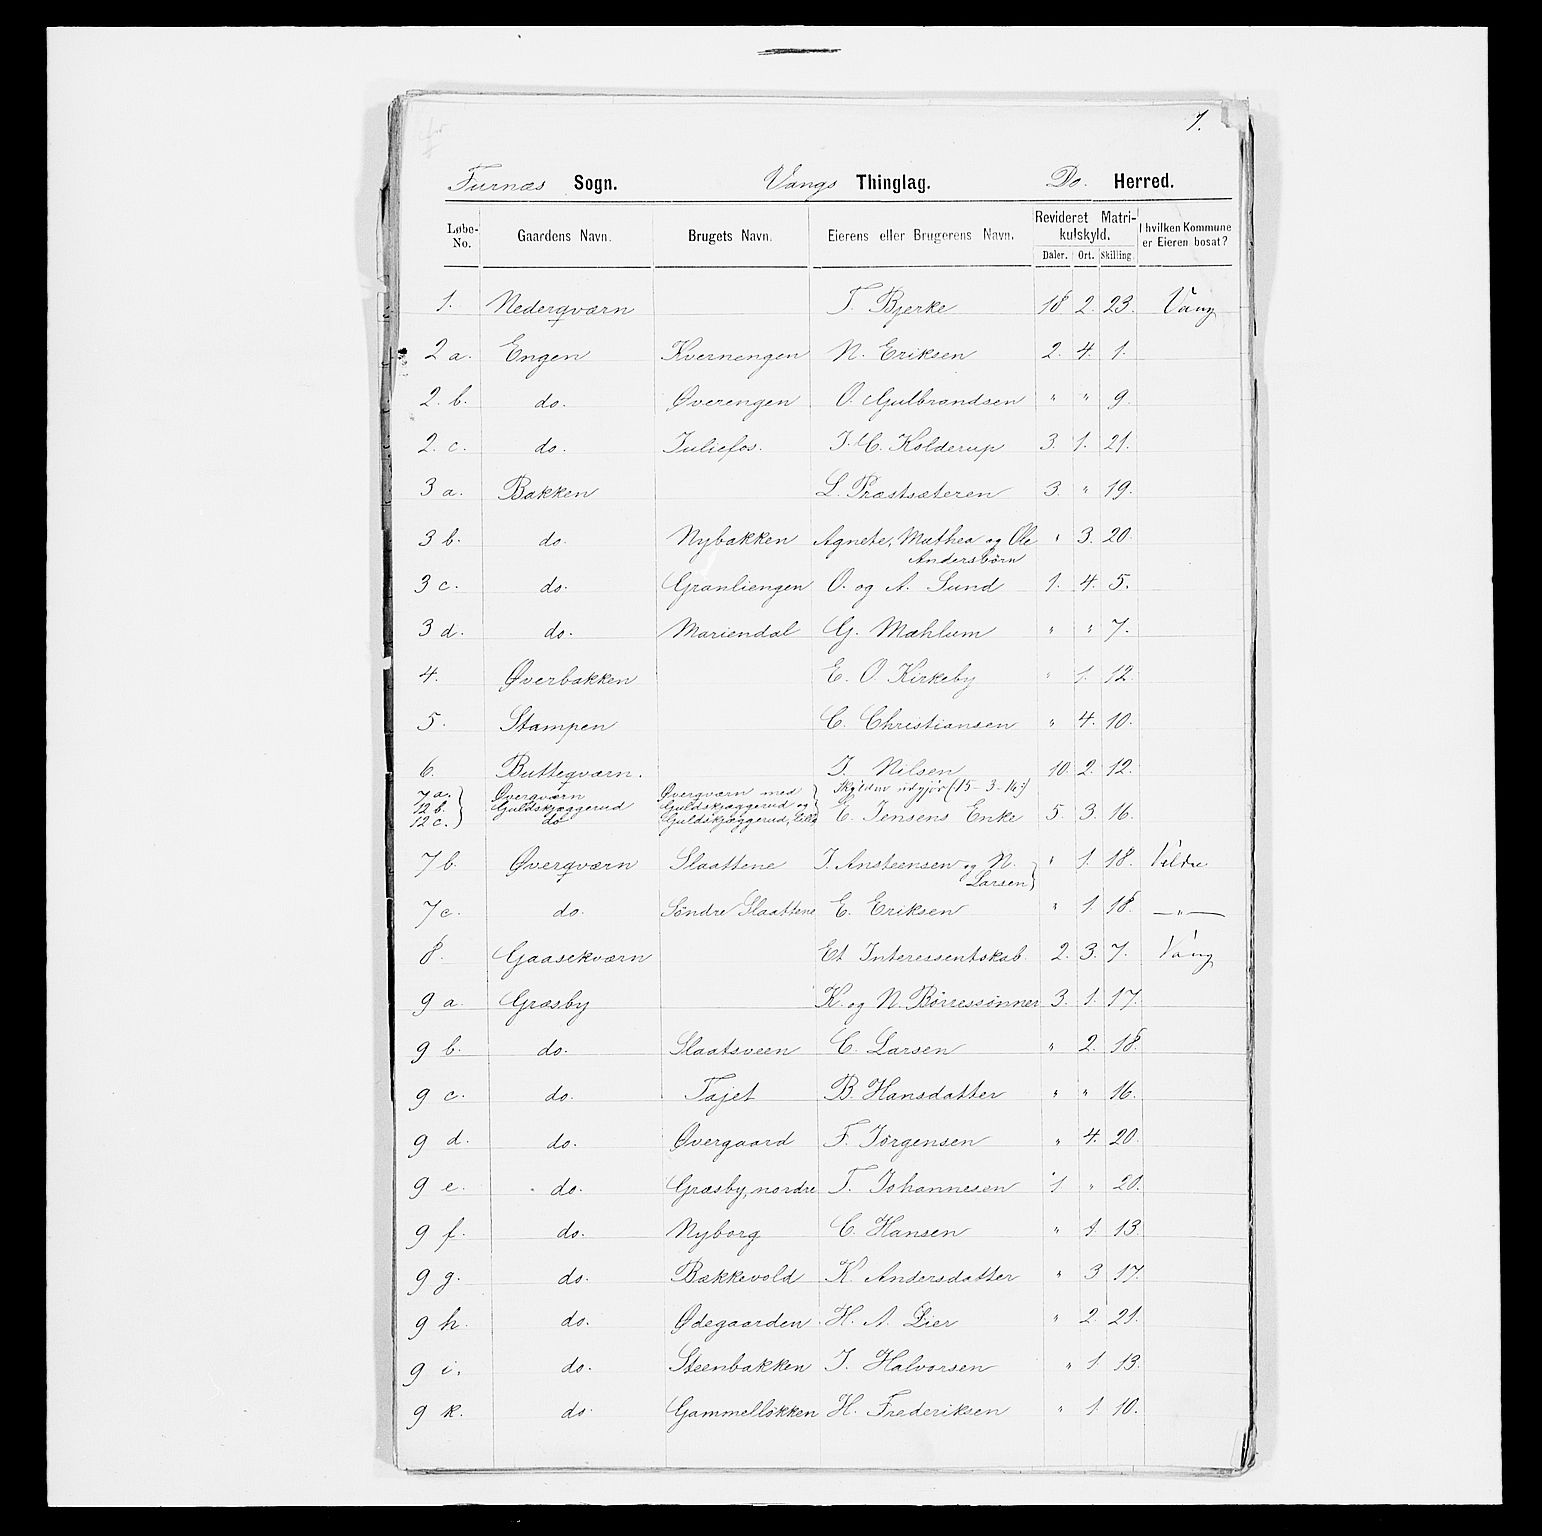 1.
Furnæs Sogn. Vangs Thinglag. Do. Herred.
Løbe-No. Gaardens Navn. Brugets Navn. Eierens eller Brugerens Navn. Revideret Matrikulskyld. I hvilken Kommune er Eieren bosat?
Daler. Ort. Skilling.
1. Nederqværn T. Bjerke 18 2. 23. Vang
2 a. Engen Kvernengen N. Eriksen 2. 4. 1.
2. b. do. Øverengen O. Gulbrandsen " " 9.
2. c. do. Juliefos. J. C. Kolderup 3. 1. 21.
3 a. Bakken L. Præstsæteren 3. " 19.
3 b. do. Nybakken Agnete, Mathea og Ole Andersbørn " 3. 20.
3 c. do. Granliengen O. og A. Lund 1. 4. 5.
3 d. do. Mariendal G. Mæhlum " " 7.
4. Øverbakken E. O. Kirkeby " 1. 12.
5. Stampen C. Christiansen " 4. 10.
6. Butteqværn. J. Nilsen 10. 2. 12.
7 a. Øverqværn Øverqværn med Skylden udgjør (15-3-16)
12 b. Guldskjæggerud Guldskjæggerud og E. Jensens Enke 5. 3. 16.
12 c. do Guldskjæggerud, lille
7 b. Øverqværn Slaattene J. Ansteensen og N. Larsen " 1. 18. Veldre
7 c. do. Søndre Slaattene E. Eriksen " 1 18. — " —
8. Gaasekværn Et Interessentskab. 2. 3. 7. Vang
9 a. Græsby K. og N. Børressønner 3. 1. 17.
9 b. do. Slaatsveen C. Larsen " 2. 18.
9 c. do. Tajet B. Hansdatter " " 16.
9 d. do. Øvergaard F. Jørgensen " 4. 20.
9 e. do. Græsby, nordre T. Johannesen 1. " 20.
9 f. do. Nyborg C. Hansen " 1. 13.
9 g. do. Bækkevold K. Andersdatter " 3 17.
9 h. do. Ødegaarden H. A. Lier " 2. 21.
9 i. do. Steenbakken J. Halvorsen " 1 13.
9 k. do. Gammelløkken H. Frederiksen " 1 10.